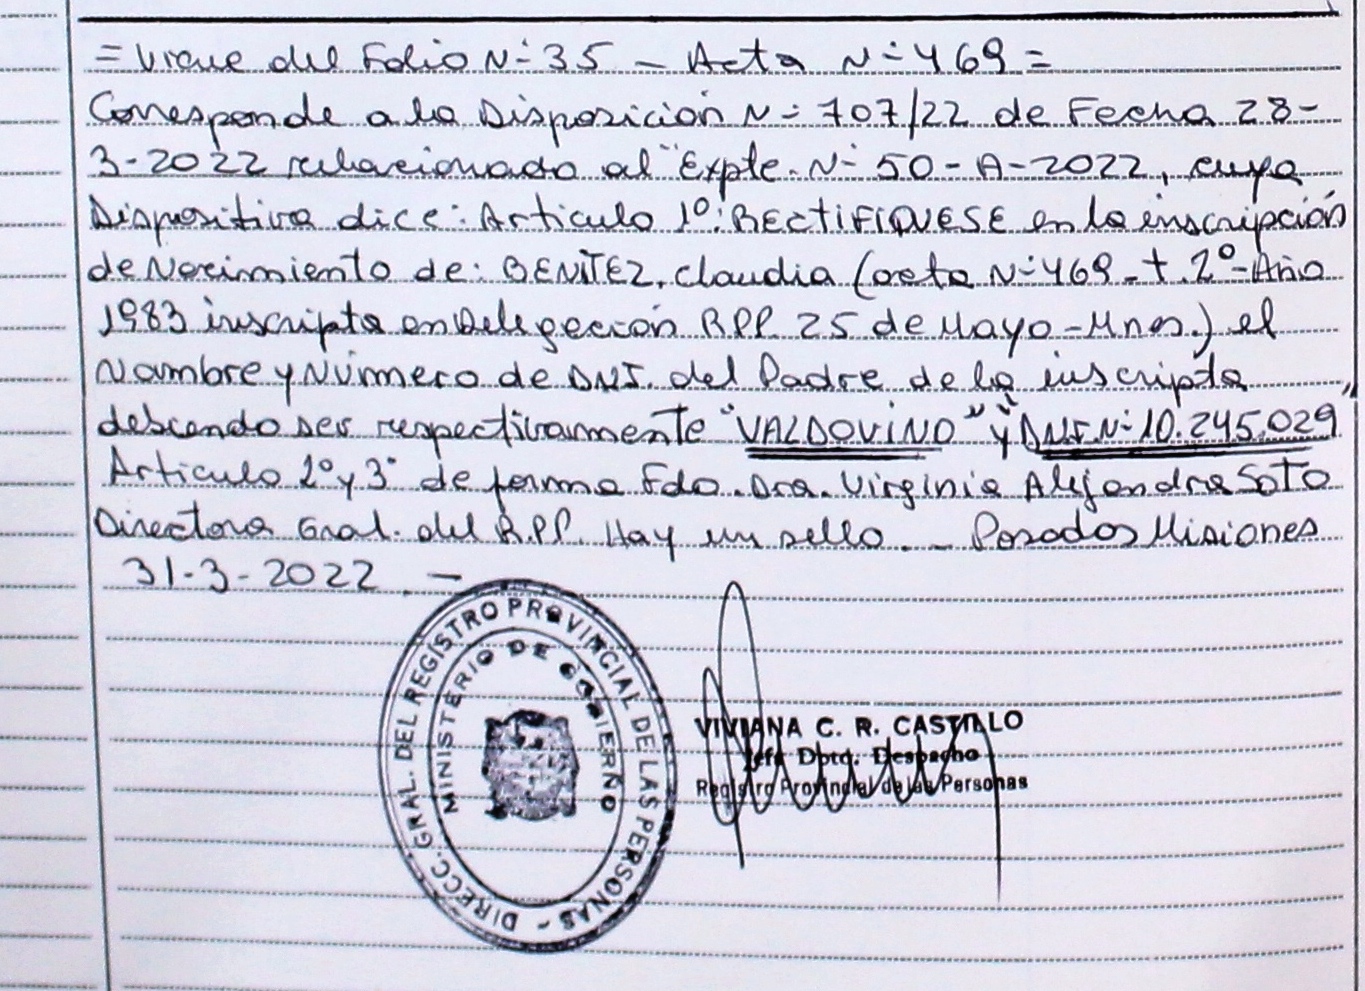 = Viene del Folio N° 35 - Acta N° 469 =
Corresponde a la Disposición N° 707/22 de Fecha 28-
3-2022 relacionado al "Expte. N° 50-A-2022, cuya
Dispositiva dice: Articulo 1º: RECTIFIQUESE en la inscripción
de Nacimiento de: BENITEZ, Claudia (acta N° 469 - t. 2º - Año
1983 inscripta en Delegación RPP. 25 de Mayo - Mnes.) el
Nombre y Número de DNI. del Padre de la inscripta
debiendo ser respectivamente "VALDOVINO" y "DNI. N° 10.245.029"
Articulo 2º y 3º de forma Fdo. Dra. Virginia Alejandra Soto
Directora Gral. del R.P.P. Hay un sello. - Posadas Misiones
31-3-2022. -
DIRECC. GRAL. DEL REGISTRO PROVINCIAL DE LAS PERSONAS -
MINISTERIO DE GOBIERNO
VIVIANA C. R. CASTILLO
Jefa Dpto. Despacho
Registro Provincial de las Personas